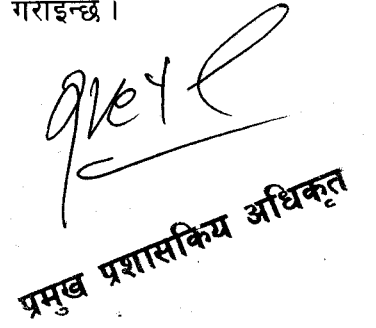 गराइन्छ ।
प्रमुख प्रशासकिय अधिकृत